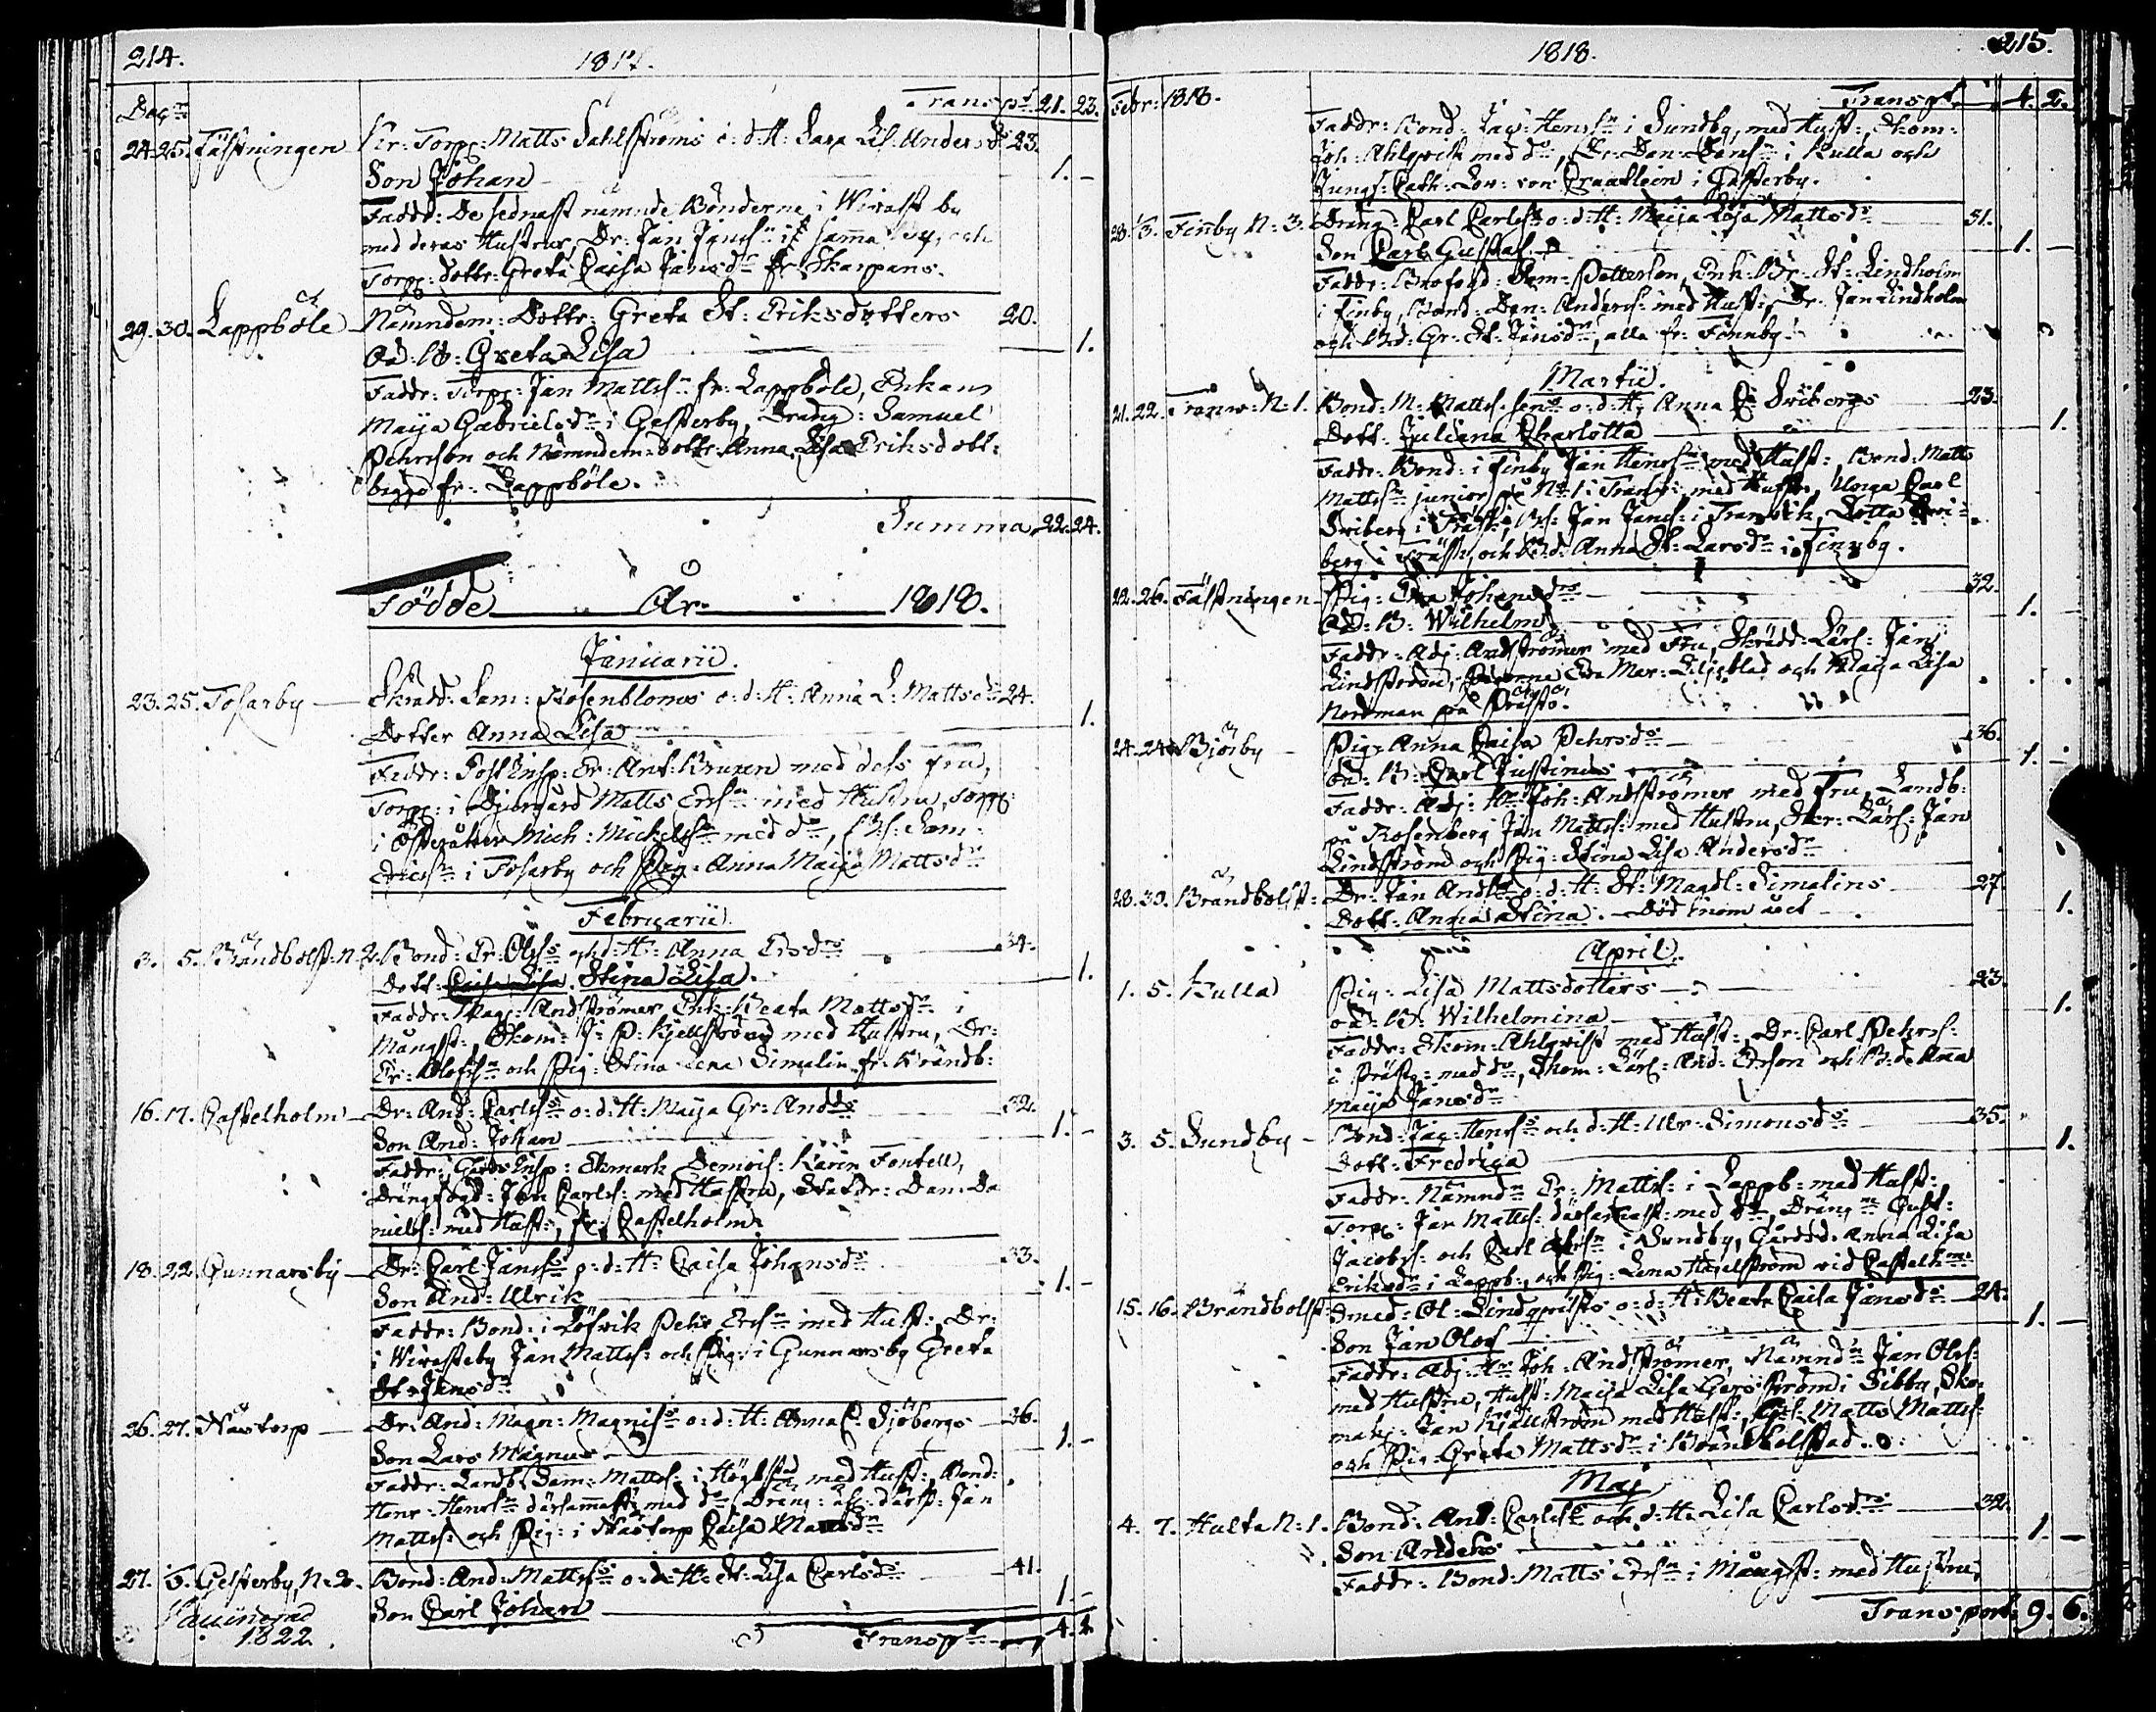 214. 1817.
Dec:r Transp:t 21. 23.
24. 25. Fästningen Kr: Torp: Matts Dahlströms o: d: H: Sara Lis: Anders d:r 23.
Son Johan 1. -
Faddr: De sednast nämnde Bönderne i Wivast by
med deras Hustrur, Dr: Jan Jans:n i samma by, och
Torp: dottr: Greta Caisa Jansd:r fr: Skarpans.
29. 30. Lappböle Nämndem: Dottr: Greta St: Eriksdotters 20.
Oä: B: Greta Lisa 1.
Faddr: Torp: Jan Matts:n fr: Lappböle, Enkan
Maija Gabrielsd:r i Gesterby, Dräng: Samuel
Pehrsson och Nämndem: dottr: Anna Lisa Eriksdott:
begge fr: Lappböle.
Summa 22. 24.
Födde År 1818.
Januarii.
23. 25. Tosarby Skradd: Sam: Rosenbloms o: d: H: Anna L: Mattsd:r 24.
Dotter Anna Lisa 1.
Faddr: Post Insp: Er: Ant: Bruxen med dess fru,
Torp: i Djurgård Matts Ers:n med Hustru, Torp:
i Österåker Mich: Mickels:n med d:o, Bs: Sam:
Erics:n i Tosarby och Pig: Anna Maija Mattsd:r
Februarii.
3. 5. Brändbolst: N. 2. Bond: Er: Ols:s och d: H: Anna Ersd:s 34.
Dott: Caisa Lisa Stina Lisa. 1.
Faddr: Mag: Andströmer, Enk: Beata Mattsd:r i
Mångst: Ekom: J: P: Kjellström med Hustru, Dr:
Er: Olofs:n och Pig: Stina Lena Simelin fr: Brändb:
16. 17. Castelholm Dr: And: Carls:s o: d: H: Maija Gr: Andd:s 32.
Son And: Johan 1. -
Faddr: Gårds Insp: Ekmark Demois: Karin Fontell,
Drängfogd: Jan Carls: med Hustru, Statdr: Dan: Da
niels: med Hust:, fr: Castelholm.
18. 22. Gunnarsby Dr: Carl Jans:s o: d: H: Caisa Johansd:s 33.
Son And: Ulrik 1. -
Faddr: Bond: i Löfvik Pehr Ers:n med Hust:, Dr:
i Wivasteby Jan Matts: och Pig: i Gunnarsby Greta
St: Jansd:r
26. 27. Nastorp Dr: And: Magn: Magnis:s o: d: H: Anna C: Sjöbergs 36.
Son Lars Magnus 1. -
Faddr: Landb: Sam: Matts: i Högbstad med Hust:, Bond:
Henr: Henrs:n därsammast: med d:o, Dräng: af: därst: Jan
Matts: och Pig: i Nastorp Caisa Mattsd:r
27. 3. Gesterby N: 2. Bond: And: Matts:s o: d: H: St: Lisa Carlsd:s 41.
Vaccinerad Son Carl Johan 1. -
1822. Transp:t 4. 2.
1818. 215.
Febr: 1818. Transp:t 4. 2.
Faddr: Bond: Jac: Henrs:n i Sundby, med Hust:, Ekom:
Joh: Ahlqvist med d:o, Dr: Dan: Dans:n i Kulla och
Jungf: Cath: Lov: von Craatlein i Gästerby.
28. 1/3. Finby N: 3. Dräng: Carl Carls:s o: d: H: Maija Lisa Mattsd:s 31.
Son Carl Gustaf. 1. -
Faddr: Brofogd: Sam: Petterson, Enk: Br: St: Lindholm
i Finby, Bond: Dan: Anders: med Hust:, Dr: Jan Lindholm
och Bd: Gr: St: Jansd:r, alla fr: Finnby.
Martii.
21. 22. Tranv: N: 1. Bond: M: Matts: sen:s o: d: H: Anna C: Svibergs 23.
Dott: Juliana Charlotta 1.
Faddr: Bond: i Finby Jan Henrs:n med Hust:, Bond: Matts
Matts:n junior på N:o 1 i Tranvi: med Hustr, Unga Carl
Sviberg i Präst:, Bs: Jan Jans: i Tranvik, Lotta Svi
berg i Präst:, och Bd: Anna St: Larsd:r i Finnby.
22. 26. Fästningen Pig: Eva Johansd:s 32.
Oä: B: Wilhelm 1. -
Faddr: Adj: Andströmer med Fru, Skrädd: Lärl: Jan
Lindström, Pigorne Eva Mar: Liljeblad och Maija Lisa
Nordman på Prästö.
24. 24. Björby Pig: Anna Caisa Pehrsd:s 36.
Oä: B: Carl Justinus 1. -
Faddr: Adj: H:r Joh: Andströmer med Fru, Landb:
på Rosenberg Jan Matts: med Hustru, Skr: Lärl: Jan
Lindström och Pig: Stina Lisa Andersd:r
28. 30. Brändbolst: Dr: Jan And:s o: d: H: St: Magdl: Simelins 27
Dott: Anna Stina. - Död inom året 1.
April.
1. 5. Kulla Pig: Lisa Mattsdotters 23.
Oä: B: Wilhelmina 1.
Faddr: Ekom: Ahlqvist med Hust:, Dr: Carl Pehrs:
i Präst: med d:o, Skom: Lärl: And: Erson och Bd: Anna
Maija Jansd:r
3. 5. Sundby Bond: Jac: Henrs:s och d: H: Ulr: Simonsd:s 35.
Dott: Fredrica 1.
Faddr: Nämnd:n Er: Matts: i Lappb: med Hust:
Torp: Jan Matts: därsammast: med d:o, Dräng:ne Gust:
Jacobs: och Carl Ers:n i Sundby, Gårdsd: Anna Lisa
Eriksd:r i Lappb:, och Pig: Lena Hagelström vid Castelh:m
15. 16. Brändbolst: Smed: Ol: Lindqvists o: d: H: Beata Caisa Jansd:s 24.
Son Jan Olof 1. -
Faddr: Adj: H:r Joh: Andströmer, Nämnd:n Jan Ols:
med Hustru, Hust: Maija Lisa Gersström i Sibby, Sko
mak: Jan Kjällström med Hust:, Gs: Matts Matts:
och Pig: Greta Mattsd:r i Brändbolstad.
Maj
4. 7. Hulta N: 1. Bond: And: Carls:s och d: H: Lisa Carlsd:s 32.
Son Anders 1. -
Faddr: Bond: Matts Ers:n i Mångst: med Hustru,
Transport 9. 6.